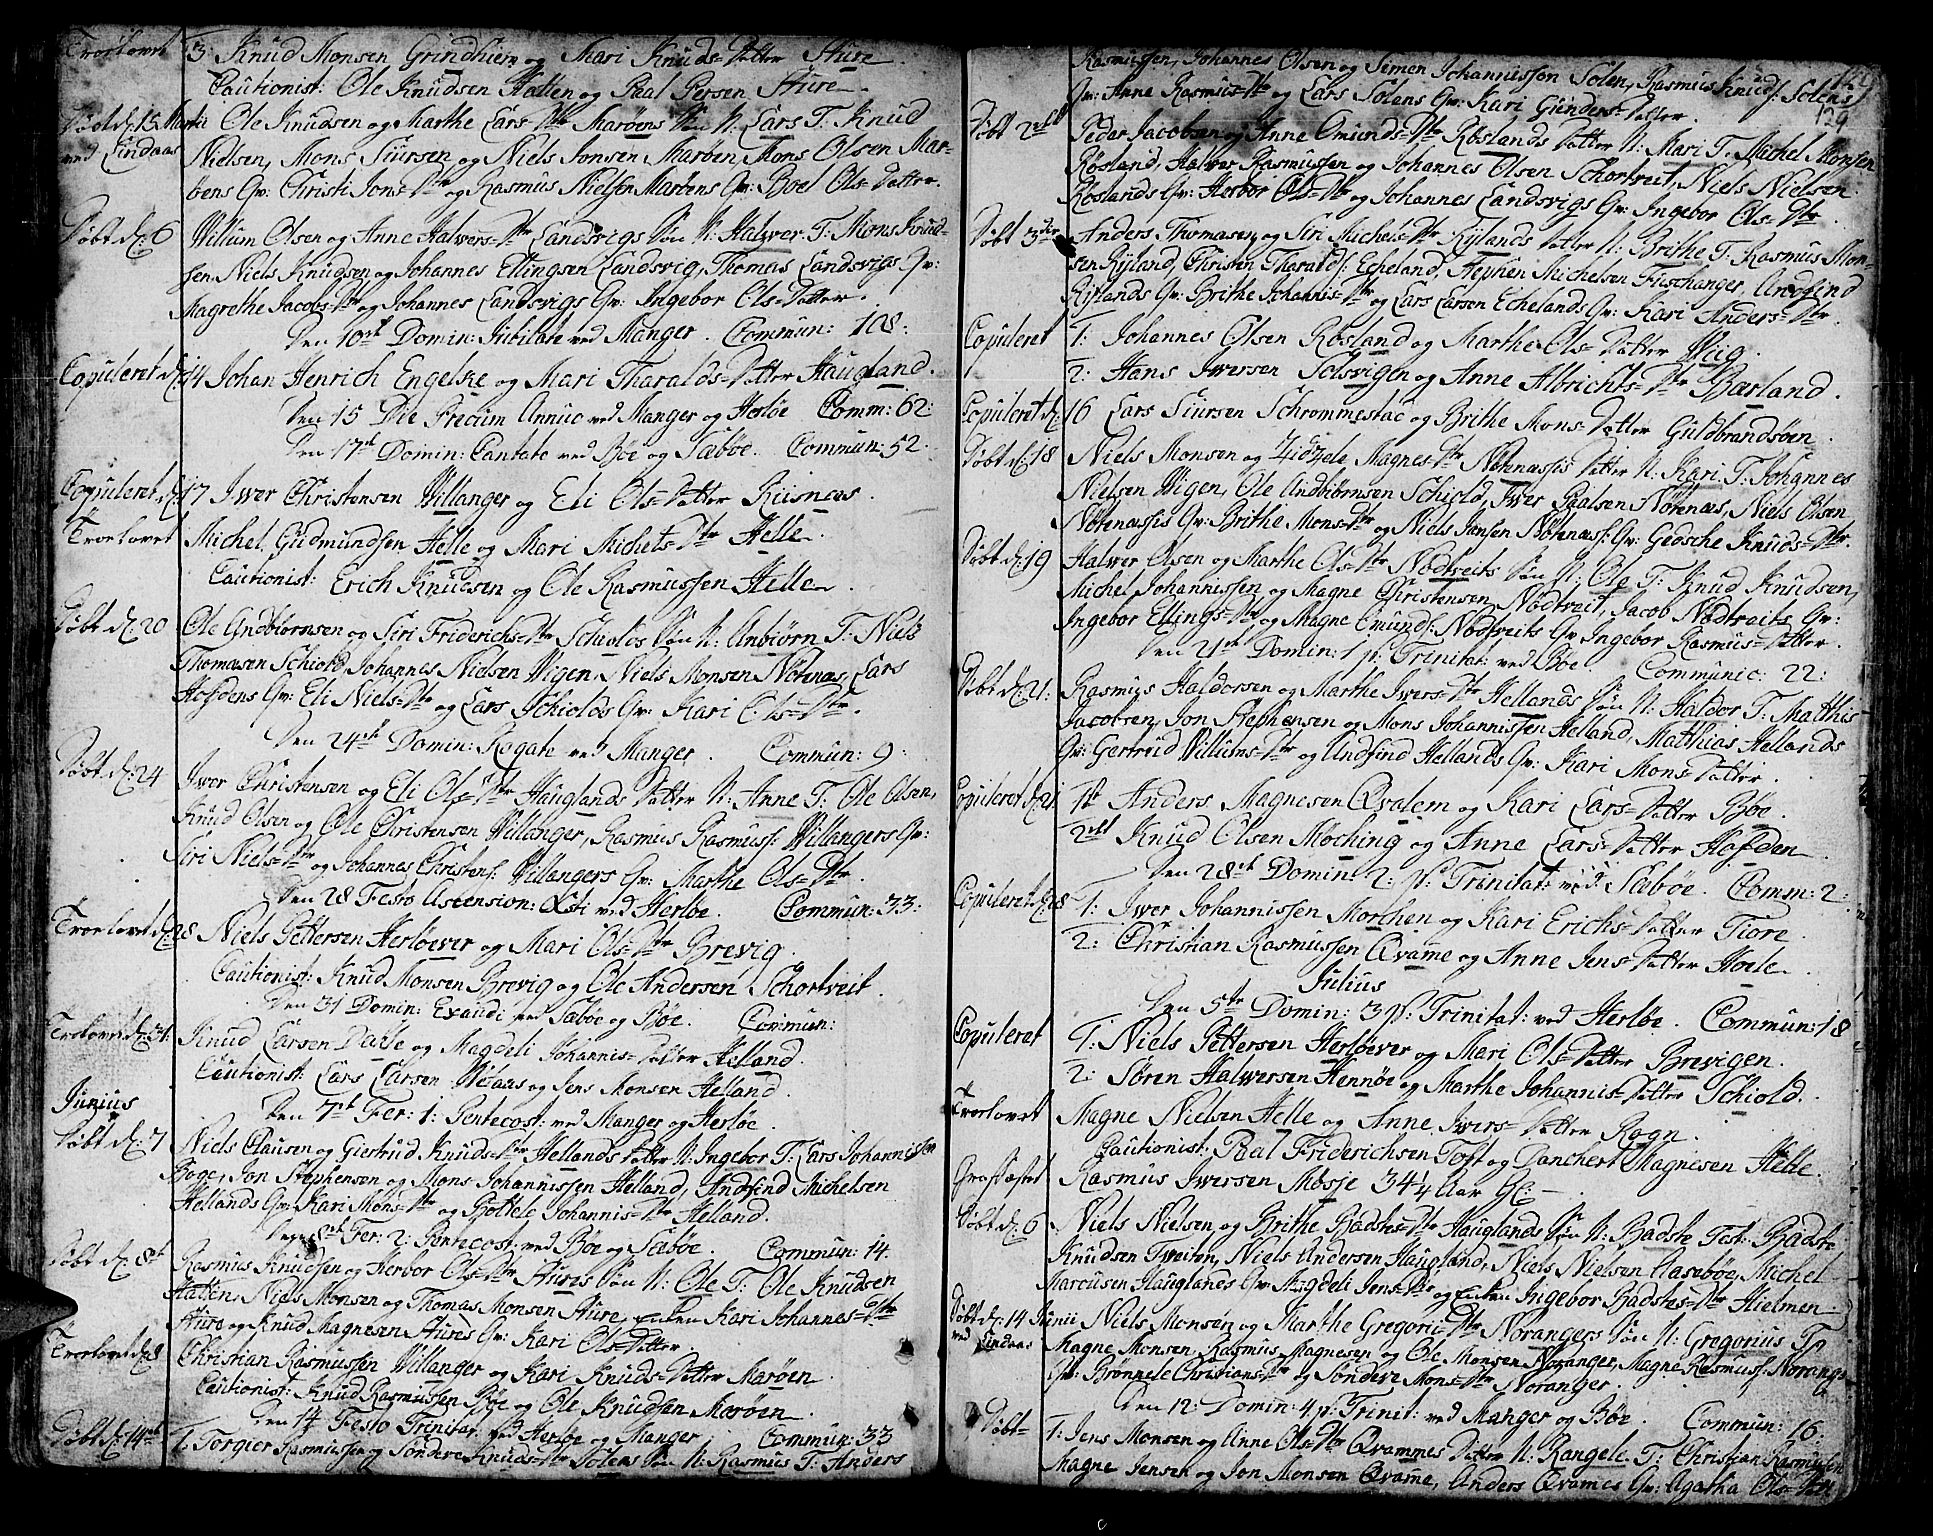 Troelovet 3: Knud Monsen Grindhiem og Mari Knuds=Datter Sture.
Cautionist: Ole Knudsen Hatten og Paal Persen Sture.
Døbt d: 15 Martii ved Lindaas Ole Knudsen og Marthe Lars=Dtr Marøens Søn N: Lars T: Knud
Nielsen, Mons Siursen og Niels Jonsen Marøen, Mons Olsen Mar-
øens Qv: Christi Jons=Dtr og Rasmus Nielsen Marøens Qv: Boel Ols=Datter.
Døbt d: 6 Willum Olsen og Anne Halvers=Dtr Landsvigs Søn N: Halver T: Mons Knud-
sen Niels Knudsen og Johannes Ellingsen Landsvig, Thomas Landsvigs Qv:
Magrethe Jacobs=Dtr og Johannes Landsvigs Qv: Ingebor Ols=Datter.
Den 10de Domin: Jubilate ved Manger. Commun: 108:
Copuleret d: 14 Johan Henrich Engelske og Mari Tharalds=Datter Haugland.
Den 15 Die Precum Annuo ved Manger og Herløe Comm: 62:
Den 17de Domin: Cantate ved Bøe og Sæbøe. Commun: 52:
Copuleret d: 17 Iwer Christensen Willanger og Eli Ols=Datter Riisnæs.
Troelovet Michel Gudmundsen Helle og Mari Michels=Dtr Helle.
Cautionist: Erich Knudsen og Ole Rasmussen Helle.
Døbt d: 20 Ole Andbiørnsen og Siri Friderichs=Dtr Schiolds Søn N: Anbiørn T: Niels
Thomæsen Schiold, Johannes Nielsen Wigen, Niels Monsen Nøtenæs, Lars
Hofdens Qv: Eli Niels=Dtr og Lars Schiolds Qv: Kari Ols=Dtr.
Den 24de Domin: Rogate ved Manger. Commun: 9:
Døbt d: 24 Iwer Christensen og Eli Ols=Dtr Hauglands Datter N: Anne T: Ole Olsen,
Knud Olsen og Ole Christensen Willanger, Rasmus Rasmuss: Willangers Qv:
Siri Niels=Dtr og Johannes Christens: Willangers Qv: Marthe Ols=Dtr.
Den 28 Festo Ascension: Xsti ved Herløe. Commun: 33:
Troelovet d: 28 Niels Pettersen Herløever og Mari Ols=Dtr Brevig.
Cautionist: Knud Monsen Brevig og Ole Andersen Schortveit.
Den 31 Domin: Exaudi ved Sæbøe og Bøe. Commun:
Troelovet d: 31. Knud Larsen Dalse og Magdeli Johannis=Datter Helland.
Cautionist: Lars Larsen og Jens Monsen Helland.
Junius Den 7de Fer: 1: Pentecost: ved Manger og Herløe.
Døbt d: 7 Niels Clausen og Giertrud Knuds=Dtr Hellands Datter N: Ingebor T: Lars Johannessen
Bøge, Jon Stephensen og Mons Johannissen Helland, Andfind Michelsen
Hellands Qv: Kari Mons=Dtr og Bottele Johannis=Dtr Helland.
Den 8de Fer: 2: Pentecost: ved Bøe og Sæbøe. Commun: 14.
Døbt d: 8de Rasmus Knudsen og Herbor Ols=Dtr Stures Søn N: Ole T: Ole Knudsen
Hatten, Niels Monsen og Thomas Monsen Sture, enken Kari Johannes=Dtr
Sture og Knud Magnesen Stures Qv: Kari Ols=Datter.
Troelovet d: 8 Christian Rasmussen Willanger og Kari Knuds=Datter Marøen.
Cautionist: Knud Rasmussen Bøe og Ole Knudsen Marøen.
Den 14 Festo Trinitat: ved Herløe og Manger. Commun: 33
Døbt d: 14de 1. Torgier Rasmussen og Søndere Knuds=Dtr Solens Søn N: Rasmus T: Anders
129
Rasmussen, Johannes Olsen og Simen Johannissen Solen, Rasmus Knuds: Solens
Qv: Anne Rasmus=Dtr og Lars Solens Qv: Kari Gunders=Datter.
Døbt 2det Peder Jacobsen og Anne Omunds=Dtr Røslands Datter N: Mari T: Michel Monsen
Røsland, Halver Rasmussen og Johannes Olsen Schortveit, Niels Nielsen
Røslands Qv: Herbor Ols=Dtr og Johannes Landsvigs Qv: Ingebor Ols=Dtr.
Døbt 3die Anders Thomasen og Siri Michels=Dtr Rylands Datter N: Brithe T: Rasmus Mon-
sen Ryland, Christen Tharalds: Echeland, Stephen Michelsen Fischanger, Andfind
Rylands Qv: Brithe Johannis=Dtr og Lars Larsen Echelands Qv: Kari Anders=Dtr.
Copuleret 1: Johannes Olsen Røsland og Marthe Ols=Datter Wiig.
2: Hans Iwersen Solsvigen og Anne Albrichts=Dtr Barland.
Copuleret d: 16 Lars Siursen Schrommestac og Brithe Mons=Datter Guldbrandsøen.
Døbt d: 18 Niels Monsen og Zidzele Magnes=Dtr Nøtenæssis Datter N: Kari T: Johannes
Nielsen Wigen, Ole Andbiørnsen Schiold, Iwer Paalsen Nøtenæs, Niels Olsen
Nøtenæssis Qv: Brithe Mons=Dtr og Niels Jensen Nøtenæss: Qv: Gedsche Knuds=Dtr.
Døbt d: 19 Halver Olsen og Marthe Ols=Dtr Nødtveits Søn N: Ole T: Knud Knudsen,
Michel Johannissen og Magne Christensen Nødtveit, Jacob Nødtveits Qv:
Ingebor Ellings=Dtr og Magne Omunds: Nødtveits Qv: Ingebor Rasmus=Datter.
Den 21de Domin: 1 p: Trinitat: ved Bøe. Communic: 22:
Døbt d: 21: Rasmus Haldorsen og Marthe Iwers=Dtr Hellands Søn N: Haldor T: Matthis
Jacobsen, Jon Stephensen og Mons Johannissen Helland, Matthias Hellands
Qv: Gertrud Willums=Dtr og Andfind Hellands Qv: Kari Mons=Datter.
Copuleret d: 21 1st Anders Magnesen Qvalem og Kari Lars=Datter Bøe.
2det Knud Olsen Møching og Anne Lars=Datter Hofden.
Den 28de Domin: 2: p: Trinitat: ved Sæbøe. Comm: 2:
Copuleret d: 28 1: Iwer Johannissen Morchen og Kari Erichs=Datter Tiore.
2: Christian Rasmussen Qvame og Anne Jens=Datter Hoele.
Julius
Den 5te Domin: 3 p: Trinitat: ved Herløe. Commun: 18
Copuleret 1: Niels Pettersen Herløever og Mari Ols=Datter Brevigen.
2: Søren Halwersen Hennøe og Marthe Johannis=Datter Schiold.
Troelovet Magne Nielsen Helle og Anne Iwers=Datter Rogn.
Cautionist: Paal Friderichsen Toft og Danchert Magnesen Helle.
Grafæstet Rasmus Iwersen Møsje 34¼ Aar Gl:
Døbt d: 6 Niels Nielsen og Brithe Badstes=Dtr Hauglands Søn N: Badste Test: Badste
Knudsen Tweiten, Niels Andersen Haugland, Niels Nielsen Aasebøe, Michel
Marcusen Hauglands Qv: Magdeli Jens=Dtr og enken Ingebor Badstes=Dtr Hielmen.
Døbt d: 14 Junii ved Lindaas Niels Monsen og Marthe Gregorii=Dtr Norangers Søn N: Gregorius T:
Magne Monsen, Rasmus Magnesen og Ole Monsen Noranger, Magne Rasmuss: Norangs
Qv: Brønnele Christians=Dtr og Søndere Mons=Dtr Noranger.
Den 12: Domin: 4 p: Trinit: ved Manger og Bøe. Commun: 16:
Døbt 1: Jens Monsen og Anne Ols=Dtr Qvammes Datter N: Rangele. T: Christian Rasmussen
Magne Jensen og Jon Monsen Qvame, Anders Qvames Qv: Agatha Ols=Datt